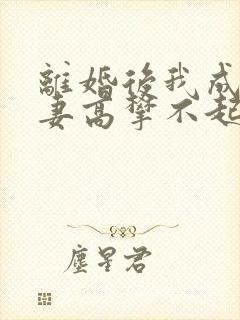 離婚後我成
妻高攀不起
塵星君